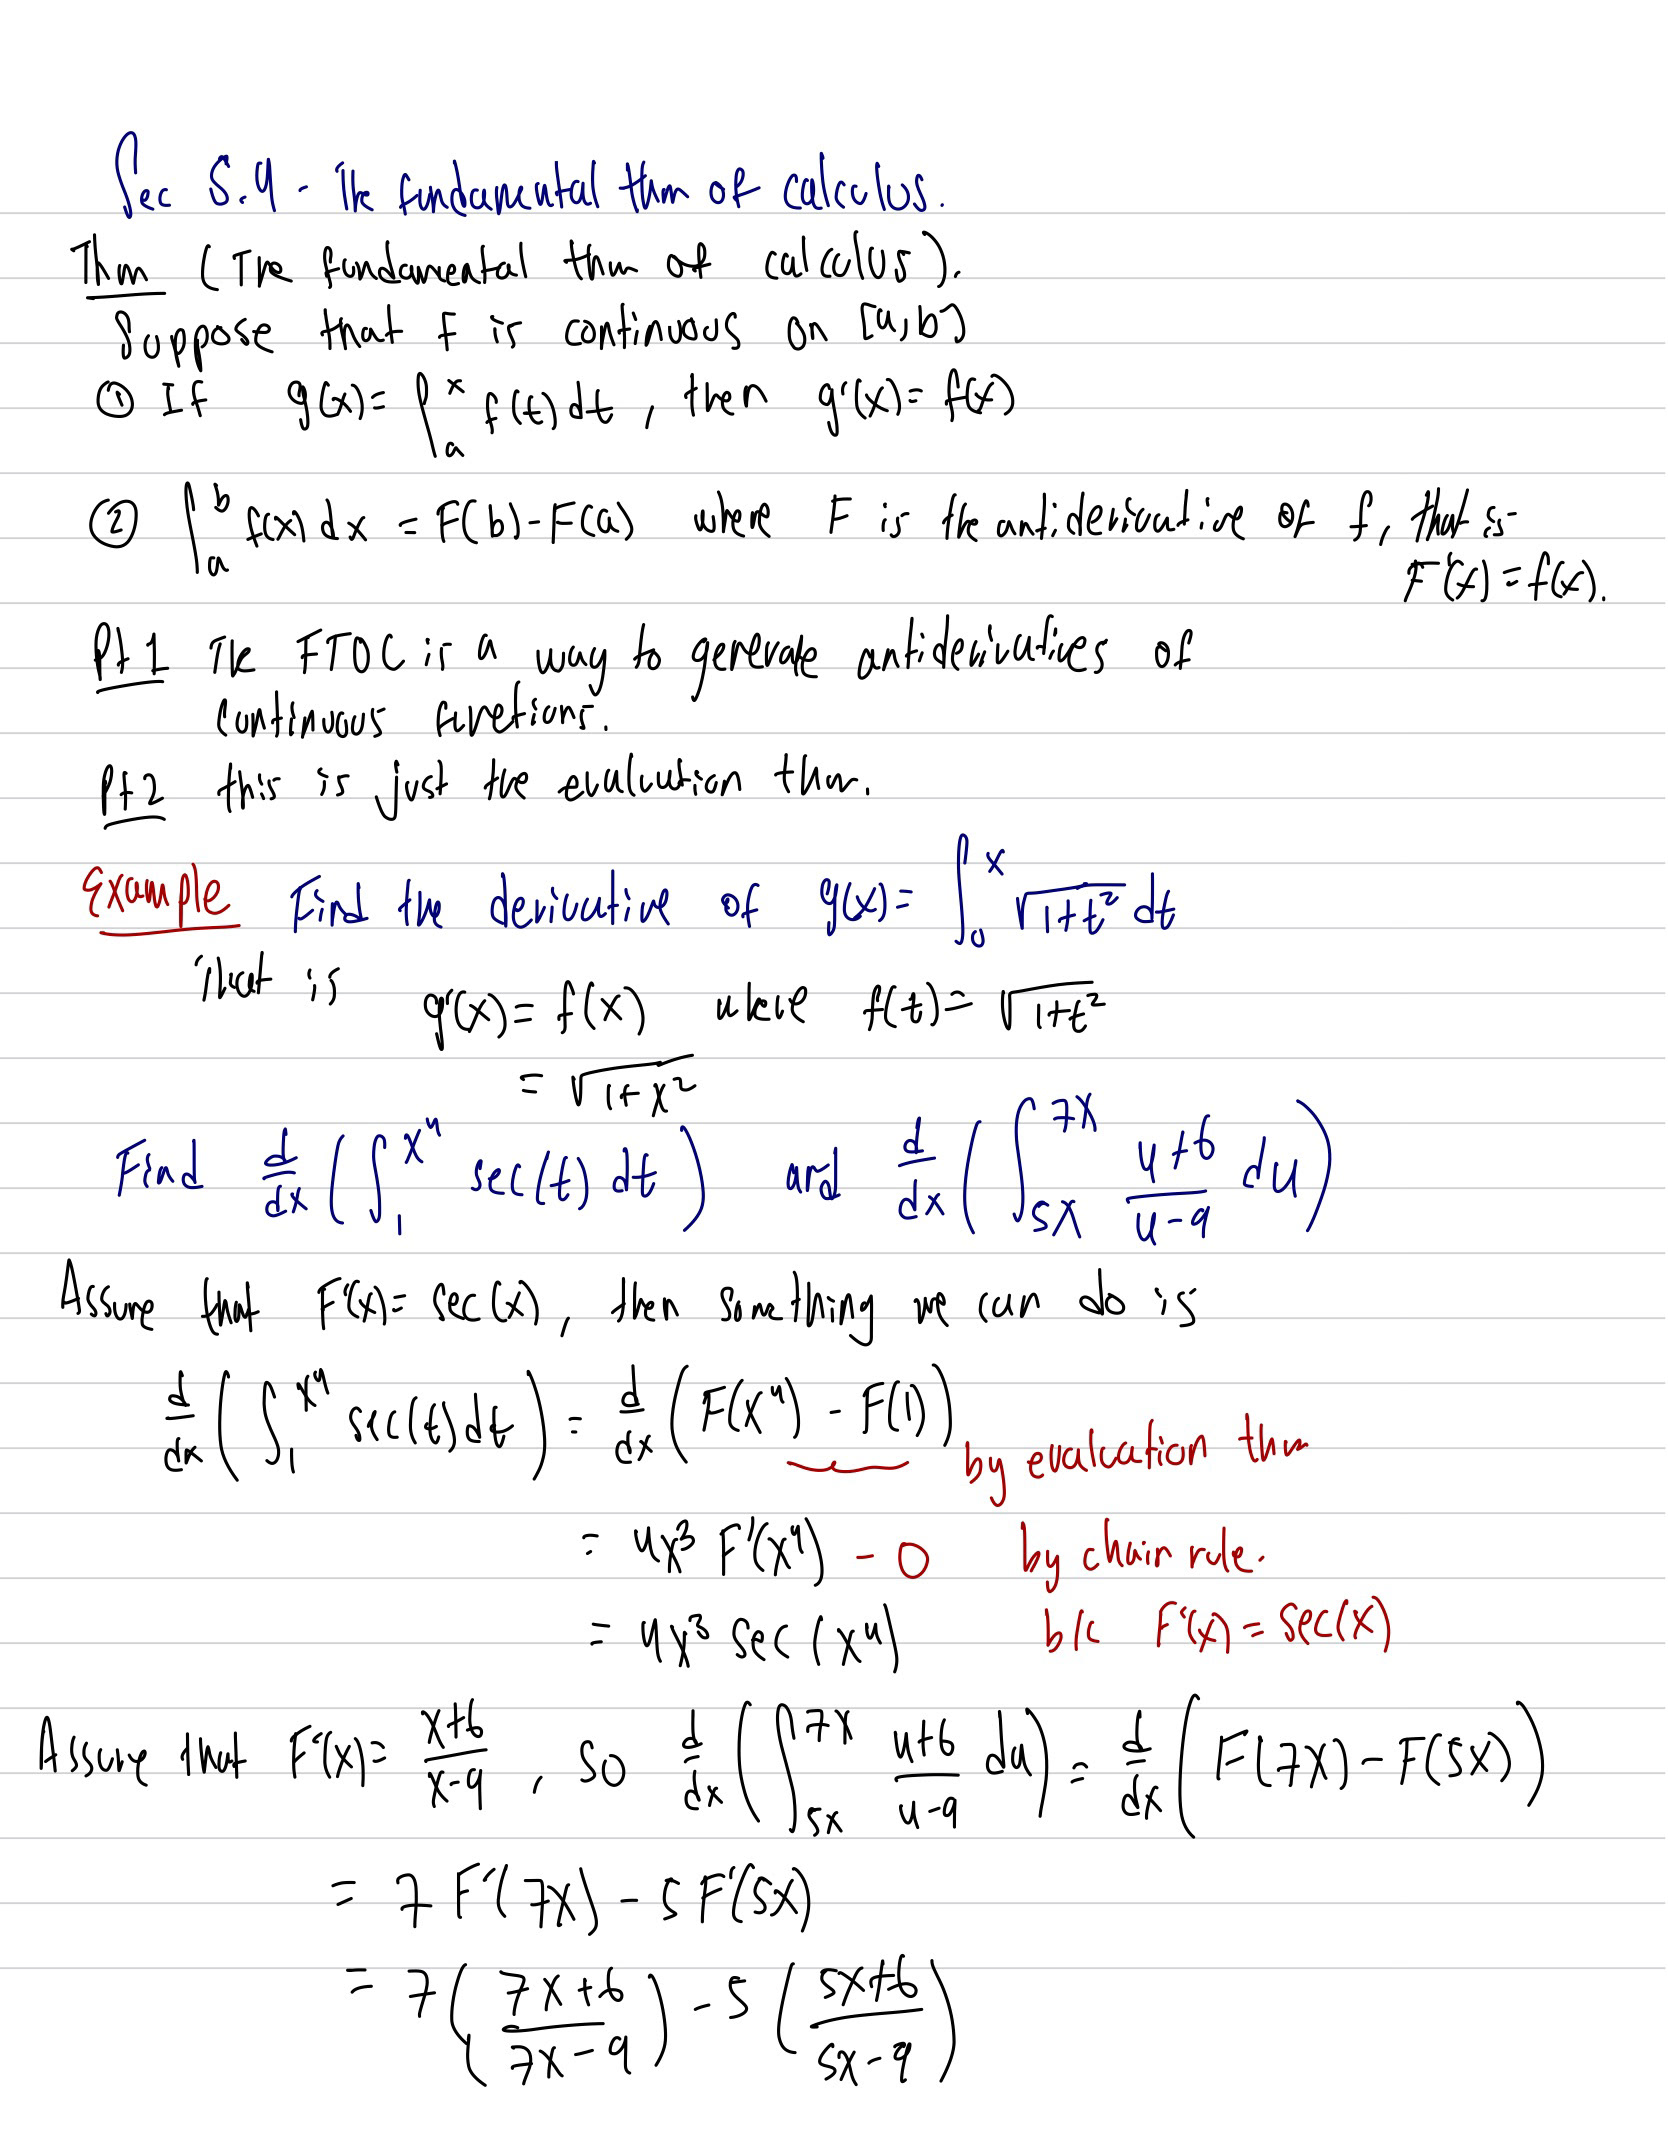 Sec 5.4 - The fundamental thm of calculus.
Thm (The fundamental thm of calculus).
Suppose that f is continuous on [a,b]
① If g(x) = ∫_a^x f(t) dt, then g'(x) = f(x)
② ∫_a^b f(x) dx = F(b) - F(a) where F is the antiderivative of f, that is
F'(x) = f(x).
Pt 1 The FTOC is a way to generate antiderivatives of
continuous functions.
Pt 2 this is just the evaluation thm.
Example Find the derivative of g(x) = ∫_0^x √(1+t²) dt
That is
g'(x) = f(x) where f(t) = √(1+t²)
= √(1+x²)
Find d/dx (∫_1^{x^4} sec(t) dt) and d/dx (∫_{5x}^{7x} (u+6)/(u-9) du)
Assume that F'(x) = sec(x), then something we can do is
d/dx (∫_1^{x^4} sec(t) dt) = d/dx (F(x^4) - F(1)) by evaluation thm
= 4x³ F'(x^4) - 0 by chain rule.
= 4x³ sec(x^4) b/c F'(x) = sec(x)
Assume that F'(x) = (x+6)/(x-9), so d/dx (∫_{5x}^{7x} (u+6)/(u-9) du) = d/dx (F(7x) - F(5x))
= 7 F'(7x) - 5 F'(5x)
= 7 ((7x+6)/(7x-9)) - 5 ((5x+6)/(5x-9))